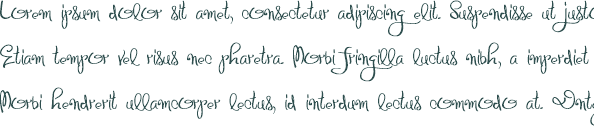 Lorem ipsum dolor sit amet, consectetur adipiscing elit. Suspendisse ut justo
Etiam tempor vel risus nec pharetra. Morbi fringilla luctus nibh, a imperdiet
Morbi hendrerit ullamcorper lectus, id interdum lectus commodo at.